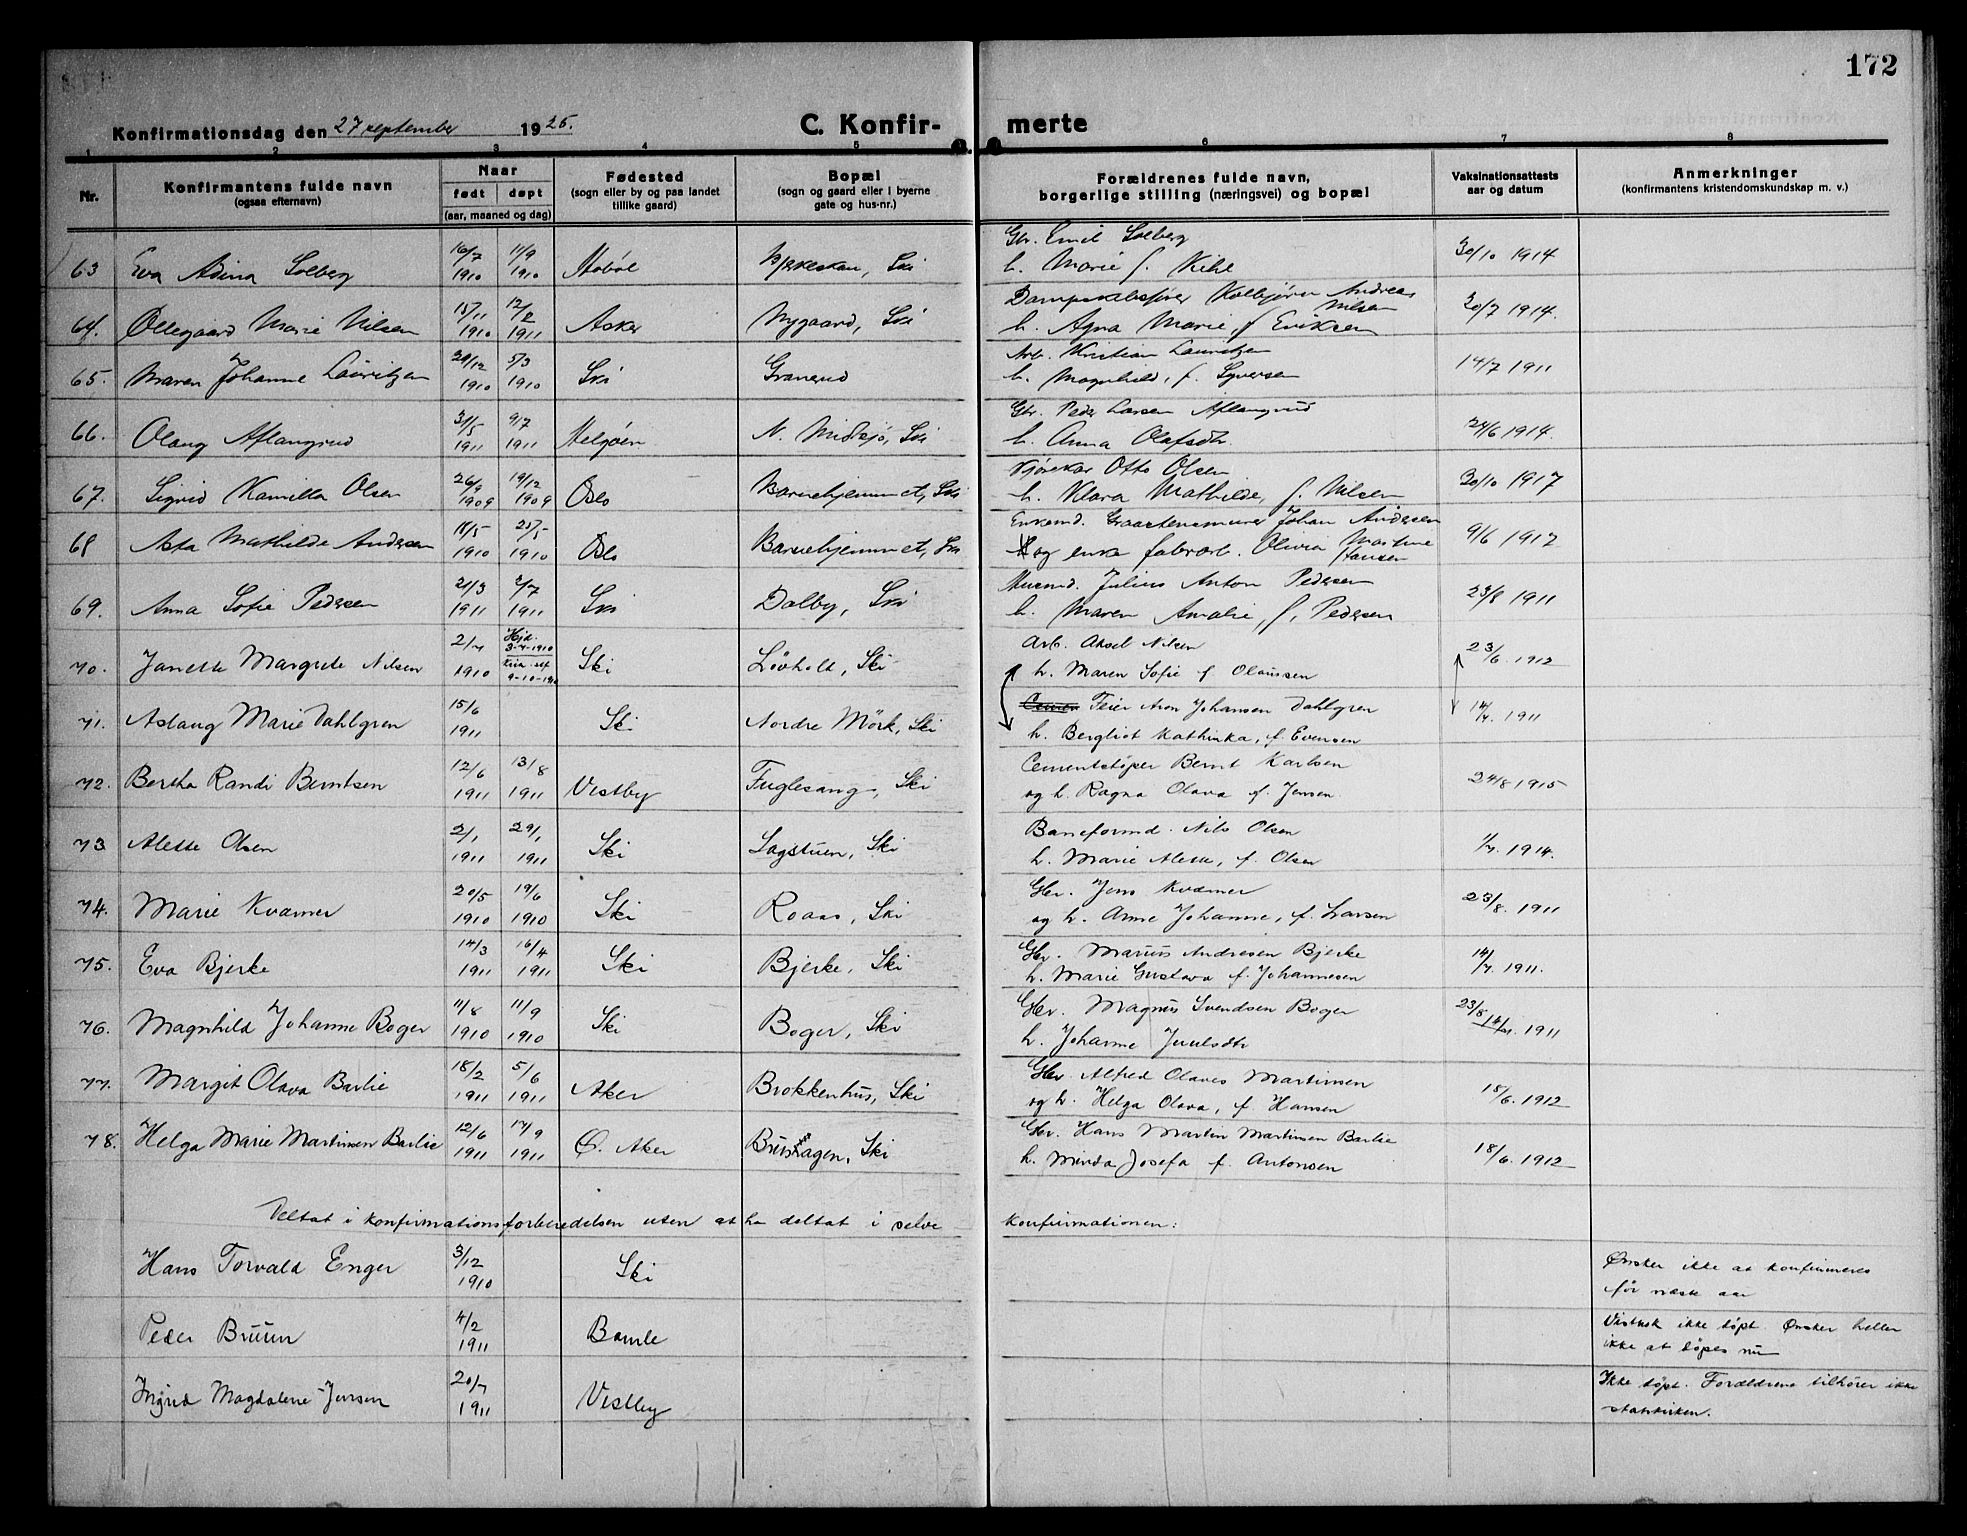 172
Konfirmationsdag den 27 september 1925. C. Konfir- merte
1 2 3 4 5 6 7 8
Nr. Konfirmantens fulde navn (ogsaa efternavn) Naar født døpt (aar, maaned og dag) Fødested (sogn eller by og paa landet tillike gaard) Bopæl (sogn og gaard eller i byerne gate og hus-nr.) Forældrenes fulde navn, borgerlige stilling (næringsvei) og bopæl Vaksinationsattests aar og datum Anmerkninger (konfirmantens kristendomskundskap m. v.)
63 Eva Adina Solberg 16/7 1910 11/9 1910 Hobøl Bjerkeskau, Ski Gbr. Emil Solberg h. Marie f. Kihl 30/10 1914
64. Ollegaard Marie Nilsen 15/11 1910 12/2 1911 Asker Nygaard, Ski Dampskibsfører Kolbjørn Andreas Nilsen h. Agna Marie, f Eriksen 30/7 1914.
65. Maren Johanne Lauritzen 1910 5/3 1910 Ski Granerud Arb. Kristian Lauritzen h. Magnhild, f. Syversen 14/7 1911
66. Olaug Aflangrud 31/5 1911 9/7 1911 Helgøen N. Midsjø, Ski Gbr. Peder Larsen Aflangrud h. Anna Olafsdtr. 24/6 1914.
67. Sigrid Kamilla Olsen 1909 19/12 1909 Oslo Barnehjemmet, Ski Kjørekar Otto Olsen h. Klara Mathilde, f. Nilsen 30/10 1917
68 Asta Mathilde Andersen 18/5 1910 1910 Oslo Barnehjemmet, Ski Enkemd. Johan Andersen og enke fabrarb. Olivia Martine Hansen 9/6 1917
69. Anna Sofie Pedersen 21/3 1911 2/7 1911 Ski Dalby, Ski Murmd. Julius Anton Pedersen h. Maren Amalie, f. Pedersen 23/8 1911
70. Janette Margrete Nilsen 2/7 1910 Hjd. 3-7-1910 9-10-1910 Ski Løvholt, Ski Arb. Aksel Nilsen h. Maren Sofie f Olaussen 23/6. 1912
71. Aslaug Marie Dahlgren 15/6 1911 Ski Nordre Mörk, Ski Feier Aron Johansen Dahlgren h. Bergliot Kathinka, f. Evensen 14/7. 1911
72. Bertha Randi Berntsen 12/6 1911 13/8 1911 Vestby Fuglesang, Ski Cementstøper Bernt Karlsen og h. Ragna Olava f. Jensen 24/8 1915
73 Alette Olsen 2/1 1911 29/1 1911 Ski Sagstuen, Ski Baneformd. Nils Olsen h. Marie Alette, f. Olsen 1/7. 1914.
74. Marie Kværner 20/5 1910 19/6 1910 Ski Roaas, Ski Gbr. Jens Kværner og h. Anne Johanne, f. Larsen 23/8. 1911
75. Eva Bjerke 14/3 1911 16/4 1911 Ski Bjerke, Ski Gbr. Marius Andresen Bjerke h. Marie Gustava f. Johannesen 14/7. 1911.
76. Magnhild Johanne Boger 11/8 1910 11/9 1910 Ski Boger, Ski Gbr. Magnus Svendsen Boger h. Johanne Juulsdtr 23/8 14/7. 1911
77. Margit Olava Barlie 18/2 1911 5/6 1911 Aker Brokkenhus, Ski Gbr Alfred Olaves Martinsen og h. Helga Olava, f Hansen 18/6. 1912
78. Helga Marie Martinsen Barlie 12/6 1911 17/9 1911 Ø. Aker Ski Gbr. Hans Martin Martinsen Barlie h. Minda Josefa f. Antonsen 18/6. 1912
Deltat i konfirmationsforberedelsen uten at ha deltat i selve konfirmationen:
Hans Torvald Enger 3/12 1910 Ski Ønsker ikke at konfirmeres før næste aar
Peder Bruun 4/2 1911 Bamle Vistnok ikke døpt. Ønsker heller ikke at døpes nu
Ingrid Magdalene Jensen 20/7 1911 Vestby Ikke døpt. Forældrene tilhører ikke statskirken.